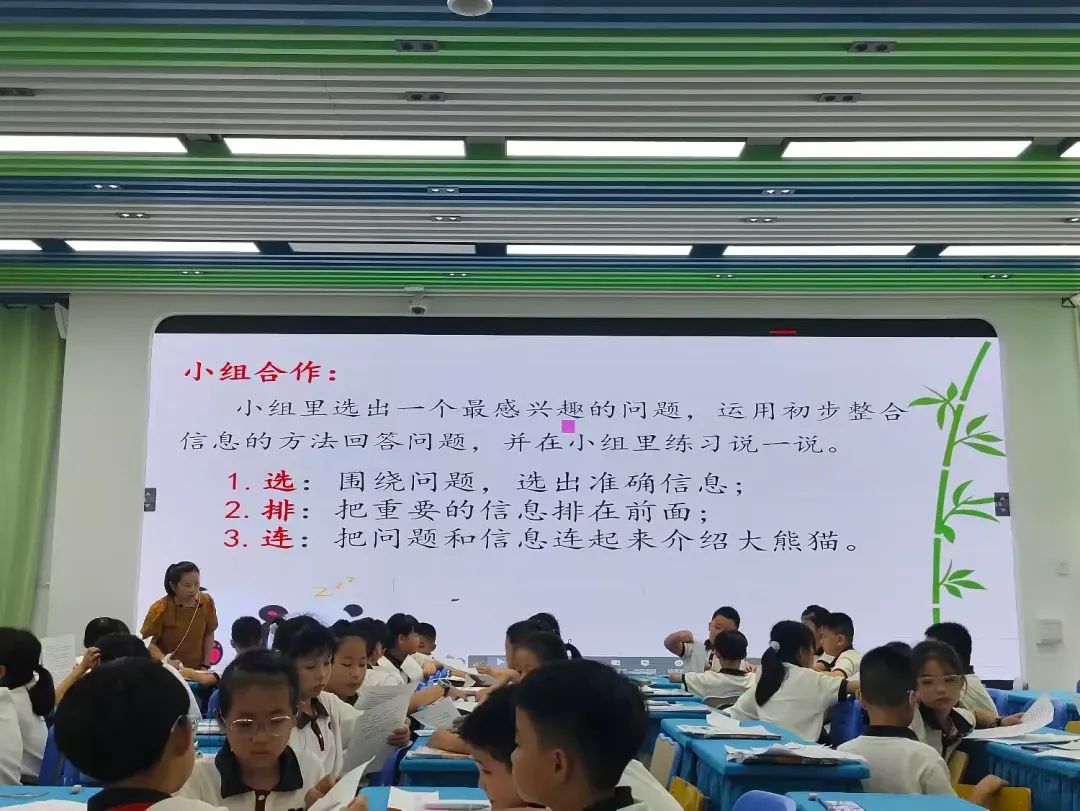 小组合作：
小组里选出一个最感兴趣的问题，运用初步整合
信息的方法回答问题，并在小组里练习说一说。
1. 选：围绕问题，选出准确信息；
2. 排：把重要的信息排在前面；
3. 连：把问题和信息连起来介绍大熊猫。
z z z